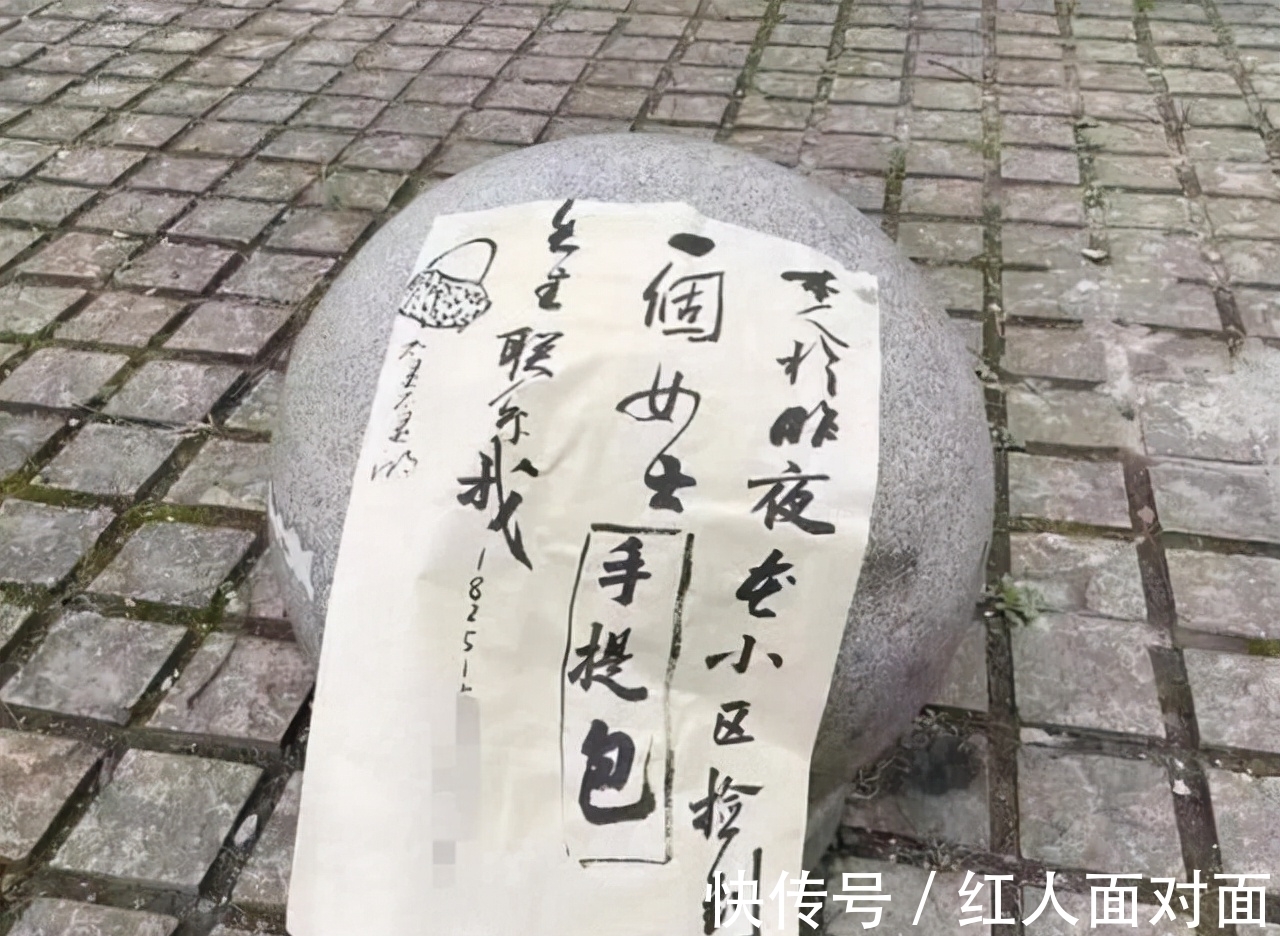 本人於昨夜在小区捡到
一個女士手提包
失主联系我18251
快传号 / 红人面对面